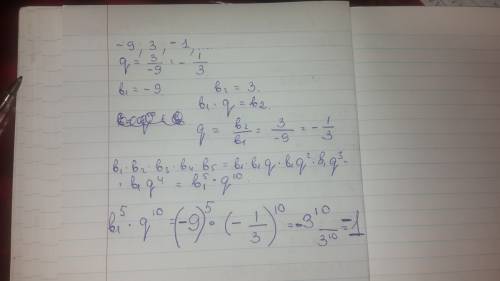 -9, 3, -1, ...
q = 3/-9 = - 1/3
b₁ = -9 b₂ = 3.
b₁ · q = b₂.
q = b₂/b₁ = 3/-9 = - 1/3
b₁ · b₂ · b₃ · b₄ · b₅ = b₁ · b₁q · b₁q² · b₁q³ ·
· b₁q⁴ = b₁⁵ · q¹⁰
b₁⁵ · q¹⁰ = (-9)⁵ · (- 1/3)¹⁰ = -3¹⁰/3¹⁰ = -1